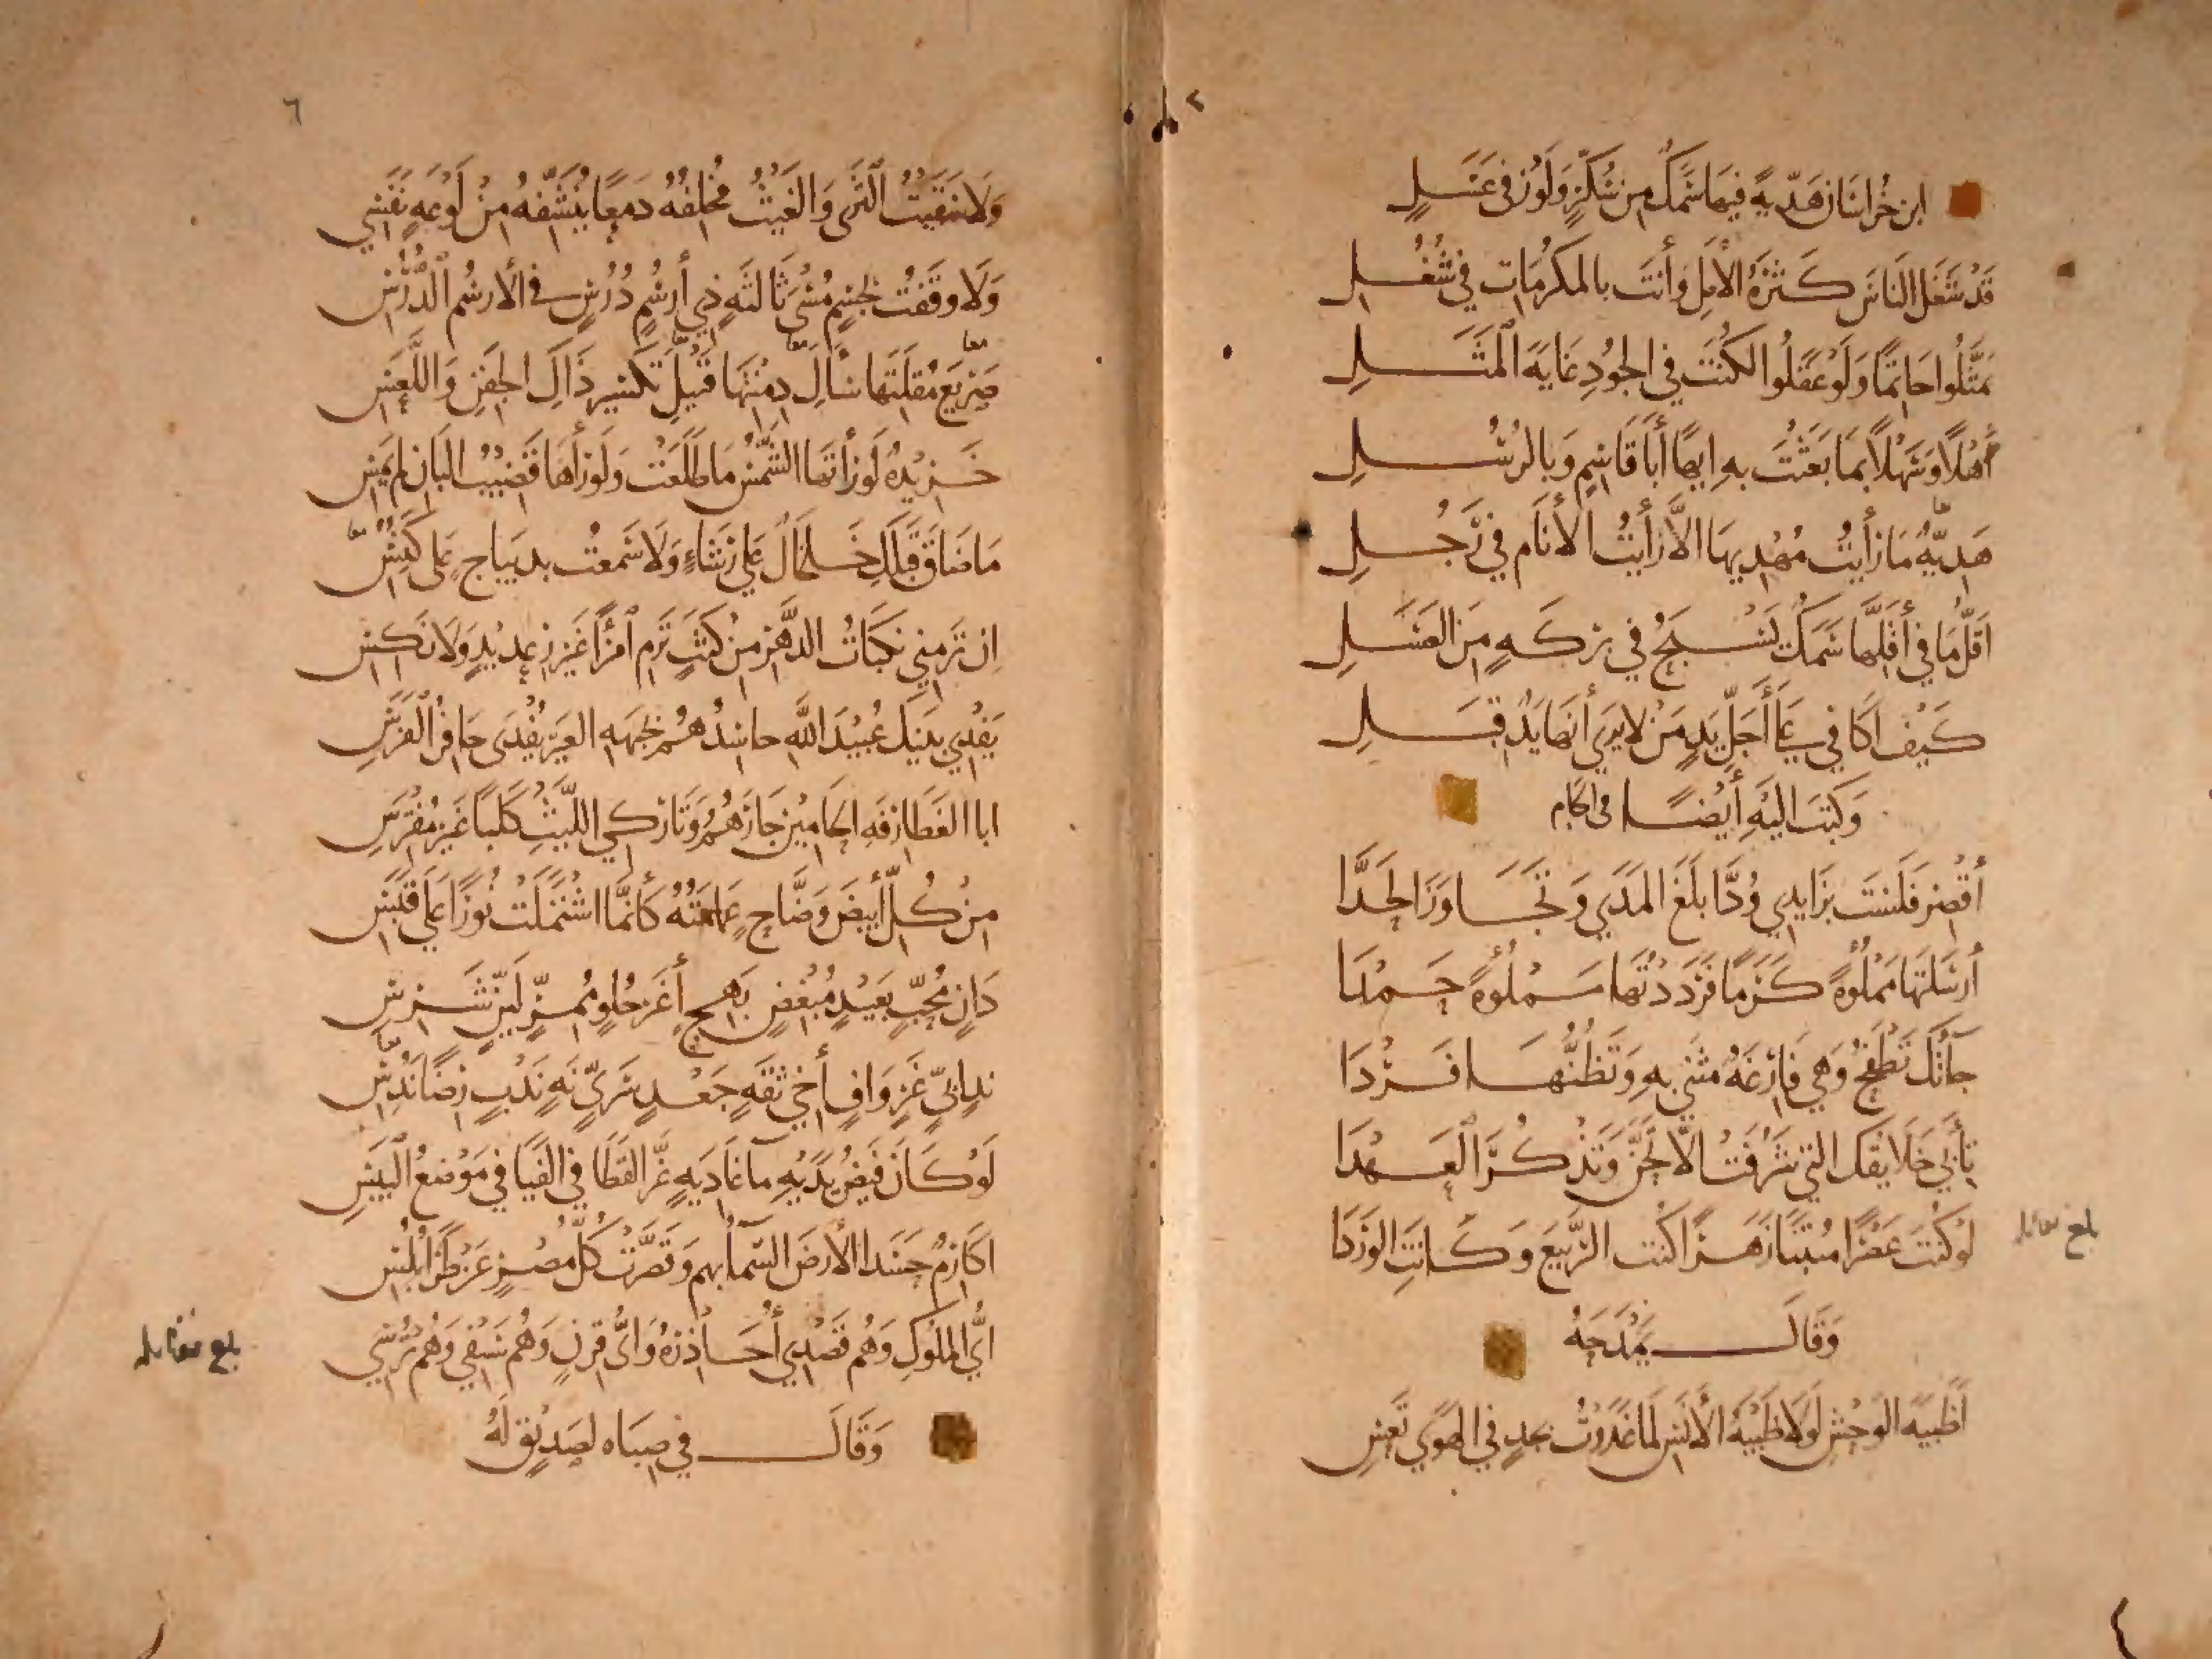 ابن خُراسَان هَدِيّةً فيهَا سَمَكٌ مِن سُكّرٍ وَلَوْزٍ في عَسَلٍ
قَدْ شَغَلَ النَاسَ كَثرَةُ الأَمَلِ وَأنتَ بالمكرُمَاتِ في شُغُلِ
تمَثَّلُوا حَاتِمًا وَلَوْ عَقَلُوا لكُنتَ في الجُودِ غَايَةَ المَثَلِ
أَهْلًا وَسَهْلًا بمَا بَعَثْتَ بهِ إيهًا أبَا قَاسِمٍ وَبالرُسُلِ
هَدِيَّةٌ مَا رَأَيتُ مُهْدِيهَا الَّا رَأَيتُ الأَنَام في رَجُلِ
اَقَلُّ مَا في أَقَلِّهَا سَمَكٌ يَسْبَحُ في بِرْكَةٍ مِنَ العَسَلِ
كَيْفَ اُكَافي عَلَى أَجَلِّ يَدٍ مَنْ لا يَرَى أَنهَا يَدٌ قِبَلِ
وَكتبَ اليْهِ أَيْضًا في الجام
أَقْصِر فَلَسْتَ بزَايدِي وُدَّا بَلَغَ المَدَى وَتجَاوَزَ الحَدَّا
أَرسَلتَهَا مَمْلُوَّةً كَرَمًا فَرَدَدْتُهَا مَمْلُوَّةً حَمْدَا
جَآتْكَ تَطْفَحُ وَهي فَارِغَةٌ مَثْنَى بهِ وَتَظُنُّهَا فَرْدَا
تَأْبَى خَلَايقُكَ التي شَرُفَتْ الَّا تَحِنَّ وَتَذْكُرَ العَهْدَا
لوْ كُنتَ عَصْرًا مُنْبتًا زَهَرًا كُنتَ الرَّبيعَ وَكَانَتِ الوَرْدَا
بلغ مقابله
وَقَالَ يَمْدَحَهُ
أَظَبْيَةَ الوَحْشِ لَوْلَا ظَبْيَةُ الأَنَسِ لَمَا غَدَوْتُ بجدٍ في الهَوَى تَعِسِ
٦
وَلَا سَقَيْتُ الثَرَى وَالغَيْثُ مُخلفُهُ دَمعًا يُنَشِّفهُ مِنْ لَوْعَةٍ نَفَسِي
وَلَا وقَفْتُ بجسْمٍ مُسْيَ ثَالثَةٍ ذِي أَرسُمٍ دُرُسٍ في الأَرسُم الدُّرُسِ
صَرِيعَ مُقلَتهَا سأَّالَ دِمْنَتِهَا قَتِيلَ تَكسِيرِ ذَاكَ الجَفنِ وَاللَّعَسِ
خَرِيْدَةٌ لَوْ رَأتهَا الشَّمْسُ مَا طَلَعَتْ وَلَوْ رَآهَا قَضِيْبُ البَان لم يَمِسِ
مَا ضَاقَ قَبْلَكِ خَلخَالٌ عَلَى رَشَاءٍ وَلَا سَمعتُ بديبَاجٍ عَلَى كُنُسِ
اِن تَرْمِني نكَبَاتُ الدَّهْر منْ كَثَبٍ تَرْم اْمرَأً غَيرَ رِعْدِيْدٍ وَلَا نَكِسِ
يَفْدِي بَنيْكَ عُبَيْدَ اللَّهِ حاسِدُهُم بجَبهَةِ العَيْر يُفْدَى حَافِرُ الْفَرَسِ
ابا الغَطَارفَةِ الحَامِيْنَ جَارَهُمُ وَتَارِكي اللَّيْثِ كَلبًا غَيرَ مُفتَرِسِ
مِنْ كُلِّ أَبيَضَ وَضَّاحٍ عِمَامَتُهُ كَأَنَّمَا اشْتَمَلَتْ نُورًا عَلَى قَبَسِ
دَانٍ مُحِبٍّ بَعِيْدٍ مُبْغَضٍ بَهِجٍ أَغَرَّ حُلوٍ مُمِرٍّ لَيِّنٍ شَرِسِ
نَدٍ ابيٍّ غَرٍ وَافٍ أَخي ثقَةٍ جَعْدٍ سَرِيٍّ نَهٍ نَدْبٍ رِضًا نَدُسِ
لَوْ كَانَ فَيْضُ يَدَيْهِ مآءَ غَاديَةٍ عَزَّ القَطَا في الفَيَا في مَوْضعُ اليَبَسِ
اكَارِمٌ حَسَدَ الأَرضَ السَّماءُ بهم وَقَصَّرَتْ كُلُّ مِصْرٍ عَنْ طَرَابُلُسِ
اَيُّ المُلُوكِ وَهُم قَصْدِي أُحَاذِرُهُ وَايُّ قِرنٍ وَهُم سَيْفي وَهُم تُرُسِي
بلغ مقابله
وَقَالَ في صبَاه لصَدِيْقٍ لَهُ